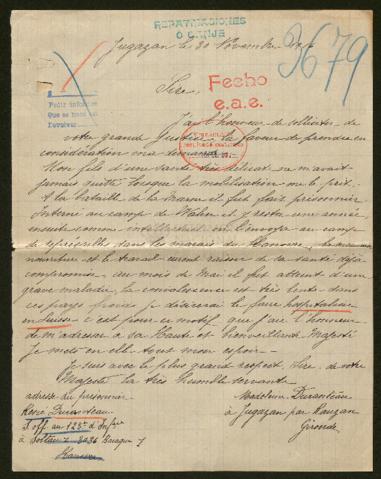 REPATRIACIONES
Ó CANJE
Jugazan le 20 Novembre
3679
Fecho
e.a.e.
Sire,
Pedir informes
J'ai l'honneur de solliciter, de
votre grande Justice la faveur de prendre en
considération ma demande.
Mon fils d'une santé très délicat ne m'avait
jamais quitté lorsque la mobilisation me le prit.
A la bataille de la Marne il fut fait prisonnier
Interné au camp de Wahn il y resta une année
ensuite comme intellectuel on l'envoya au camp
de dans les marais du Hanovre, la mauvaise
nourriture et le travail eurent raison de sa santé déjà
compromise. au mois de Mai il fut atteint d'une
grave maladie, la convalescence est très lente dans
ces pays froids je désirerai le faire hospitaliser
en Suisse c'est pour ce motif que j'ai l'honneur
de m'adresser à sa Haute et bienveillante Majesté
Je mets en elle tout mon espoir.
Je suis avec le plus grand respect, Sire, de votre
Majesté la très humble servante
adresse du prisonnier
Duranteau
à Jugazan par Rauzan
Gironde
René Duranteau
S. off au 123e d'Infrie
à Soltau Z 3036 Baraque 7
Hanovre